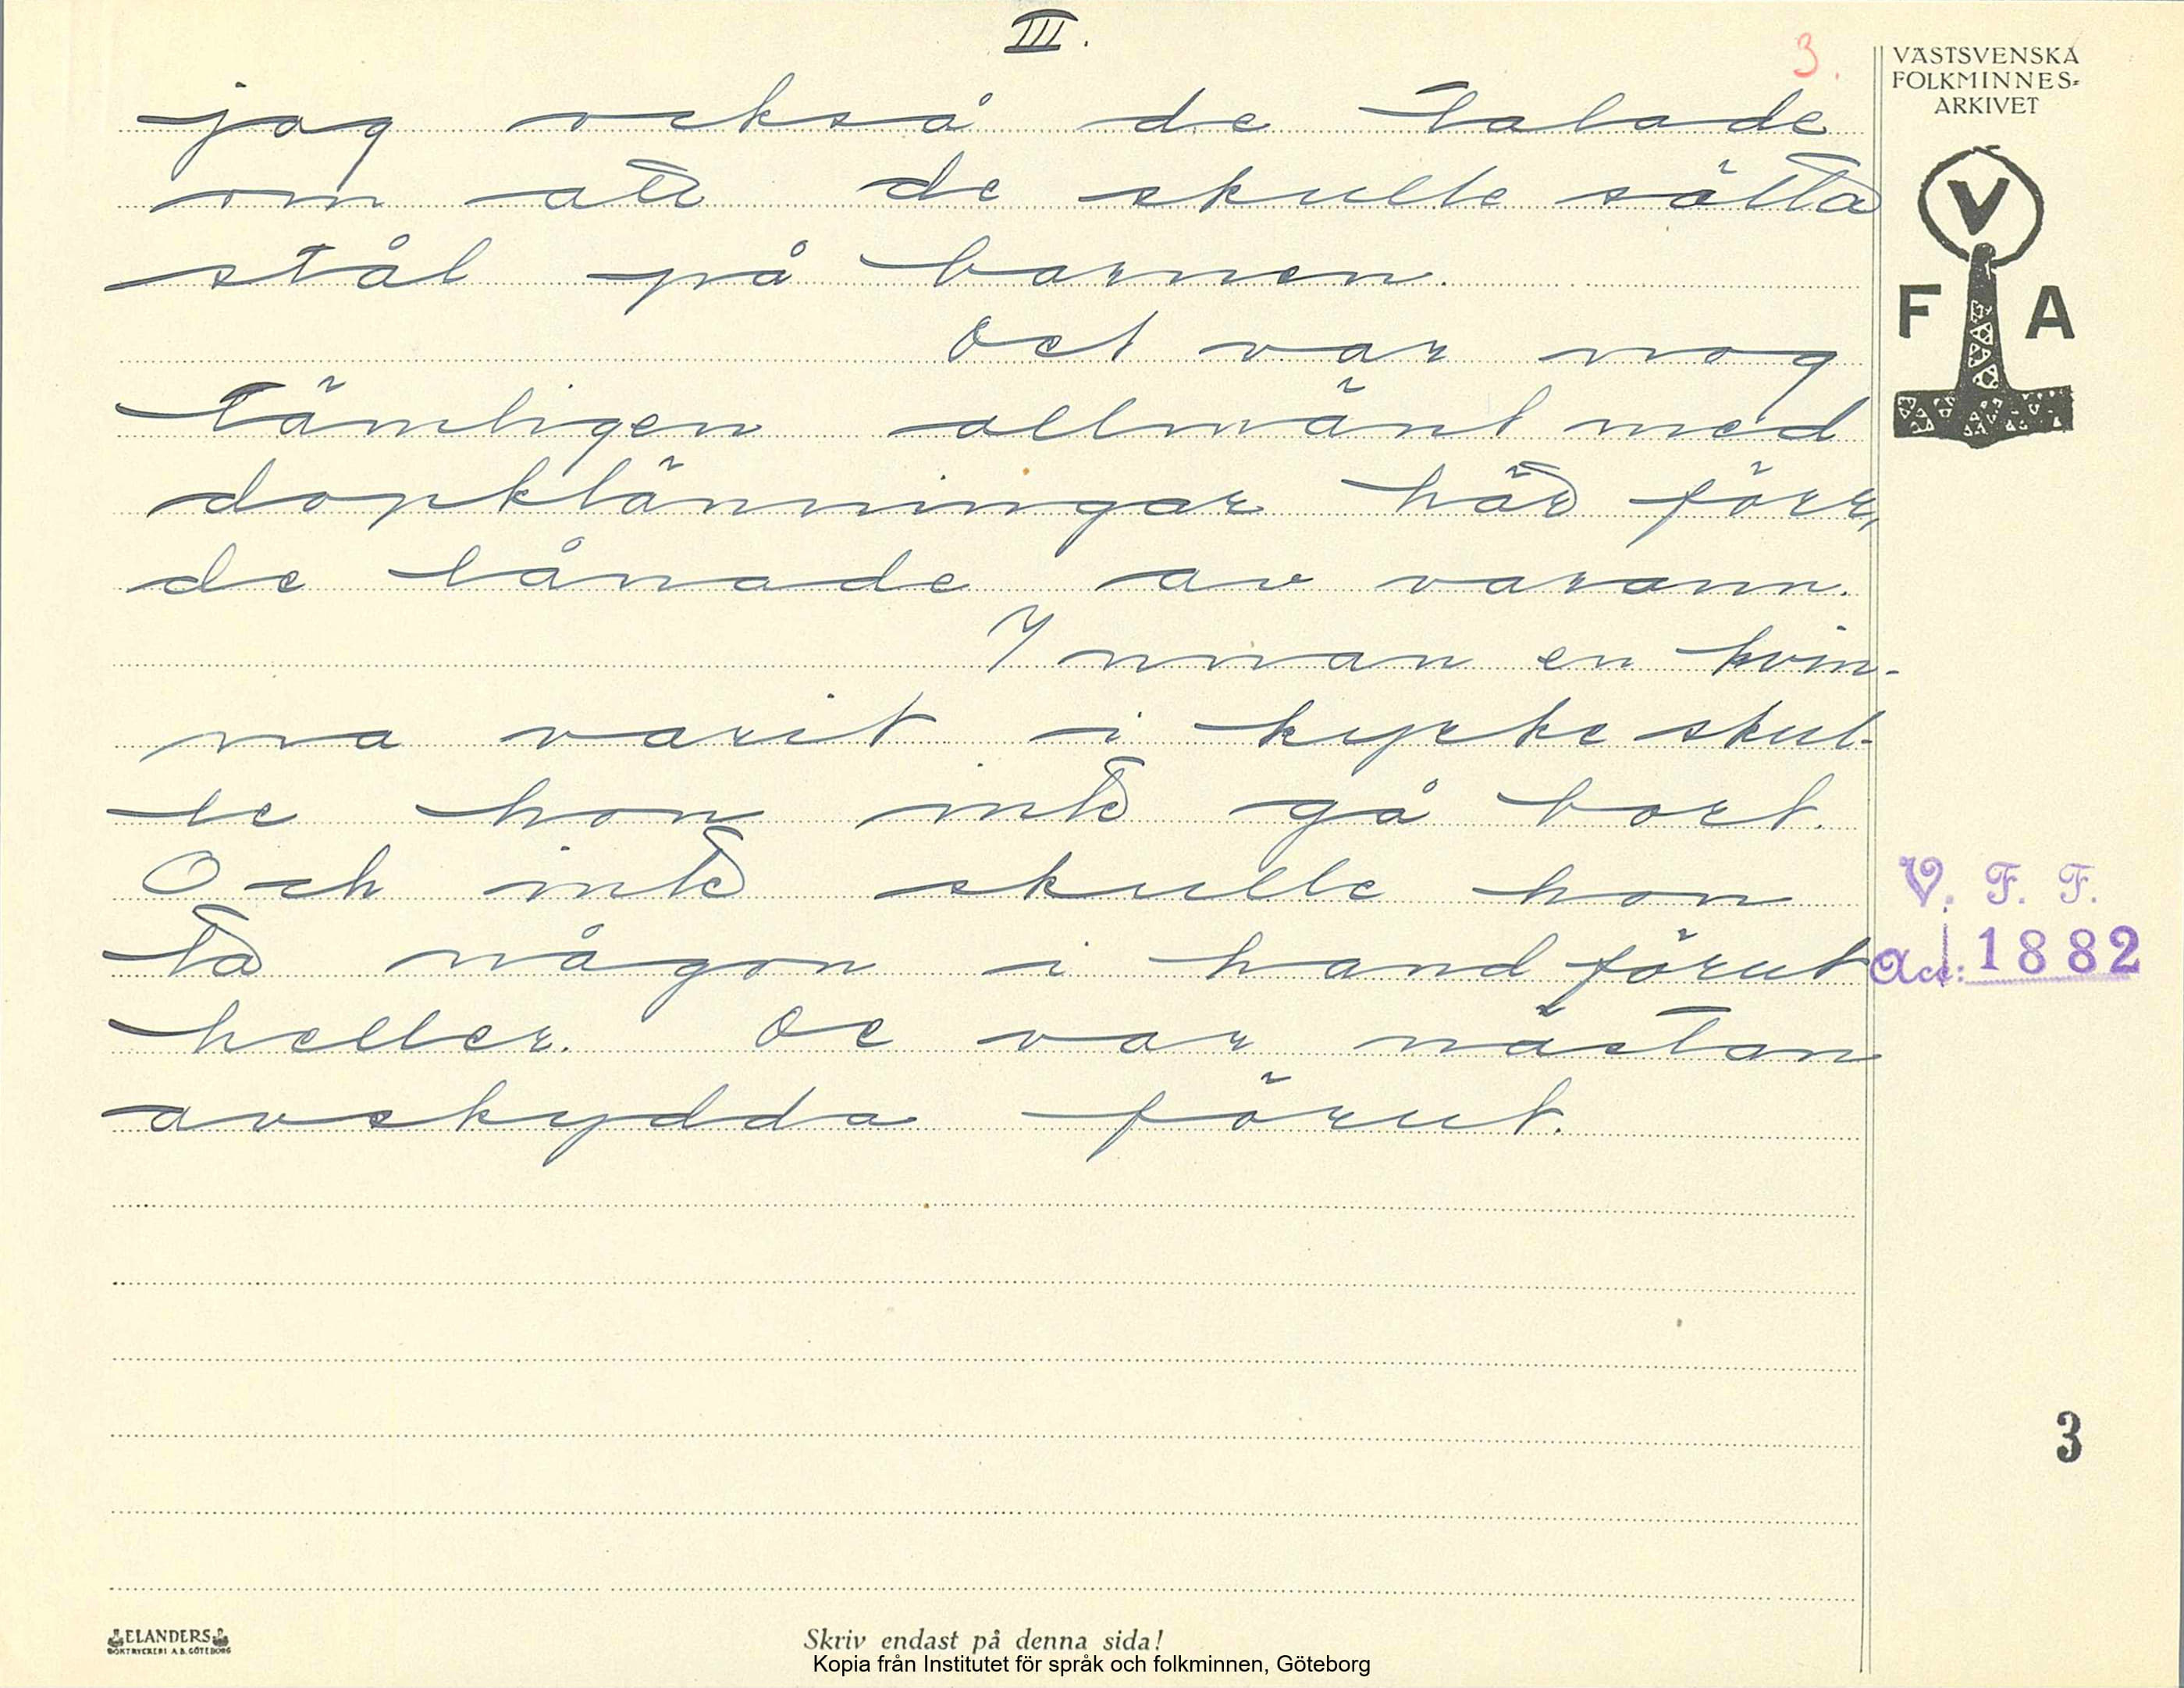 III.
3.
jag också de talade
om att de skulle sätta
stål på barnen.
Det var nog
tämligen allmänt med
dopklänningar här förr,
de lånade av varann.
Innan en kvin-
na varit i kyrke skul-
le hon inte gå bort.
Och inte skulle hon
ta någon i hand förut
heller. De var nästan
avskydda förut.
VÄSTSVENSKA
FOLKMINNES-
ARKIVET
V
F A
V. F. F.
Acc: 1882
3
ELANDERS
BOKTRYCKERI A.B. GÖTEBORG
Skriv endast på denna sida!
Kopia från Institutet för språk och folkminnen, Göteborg